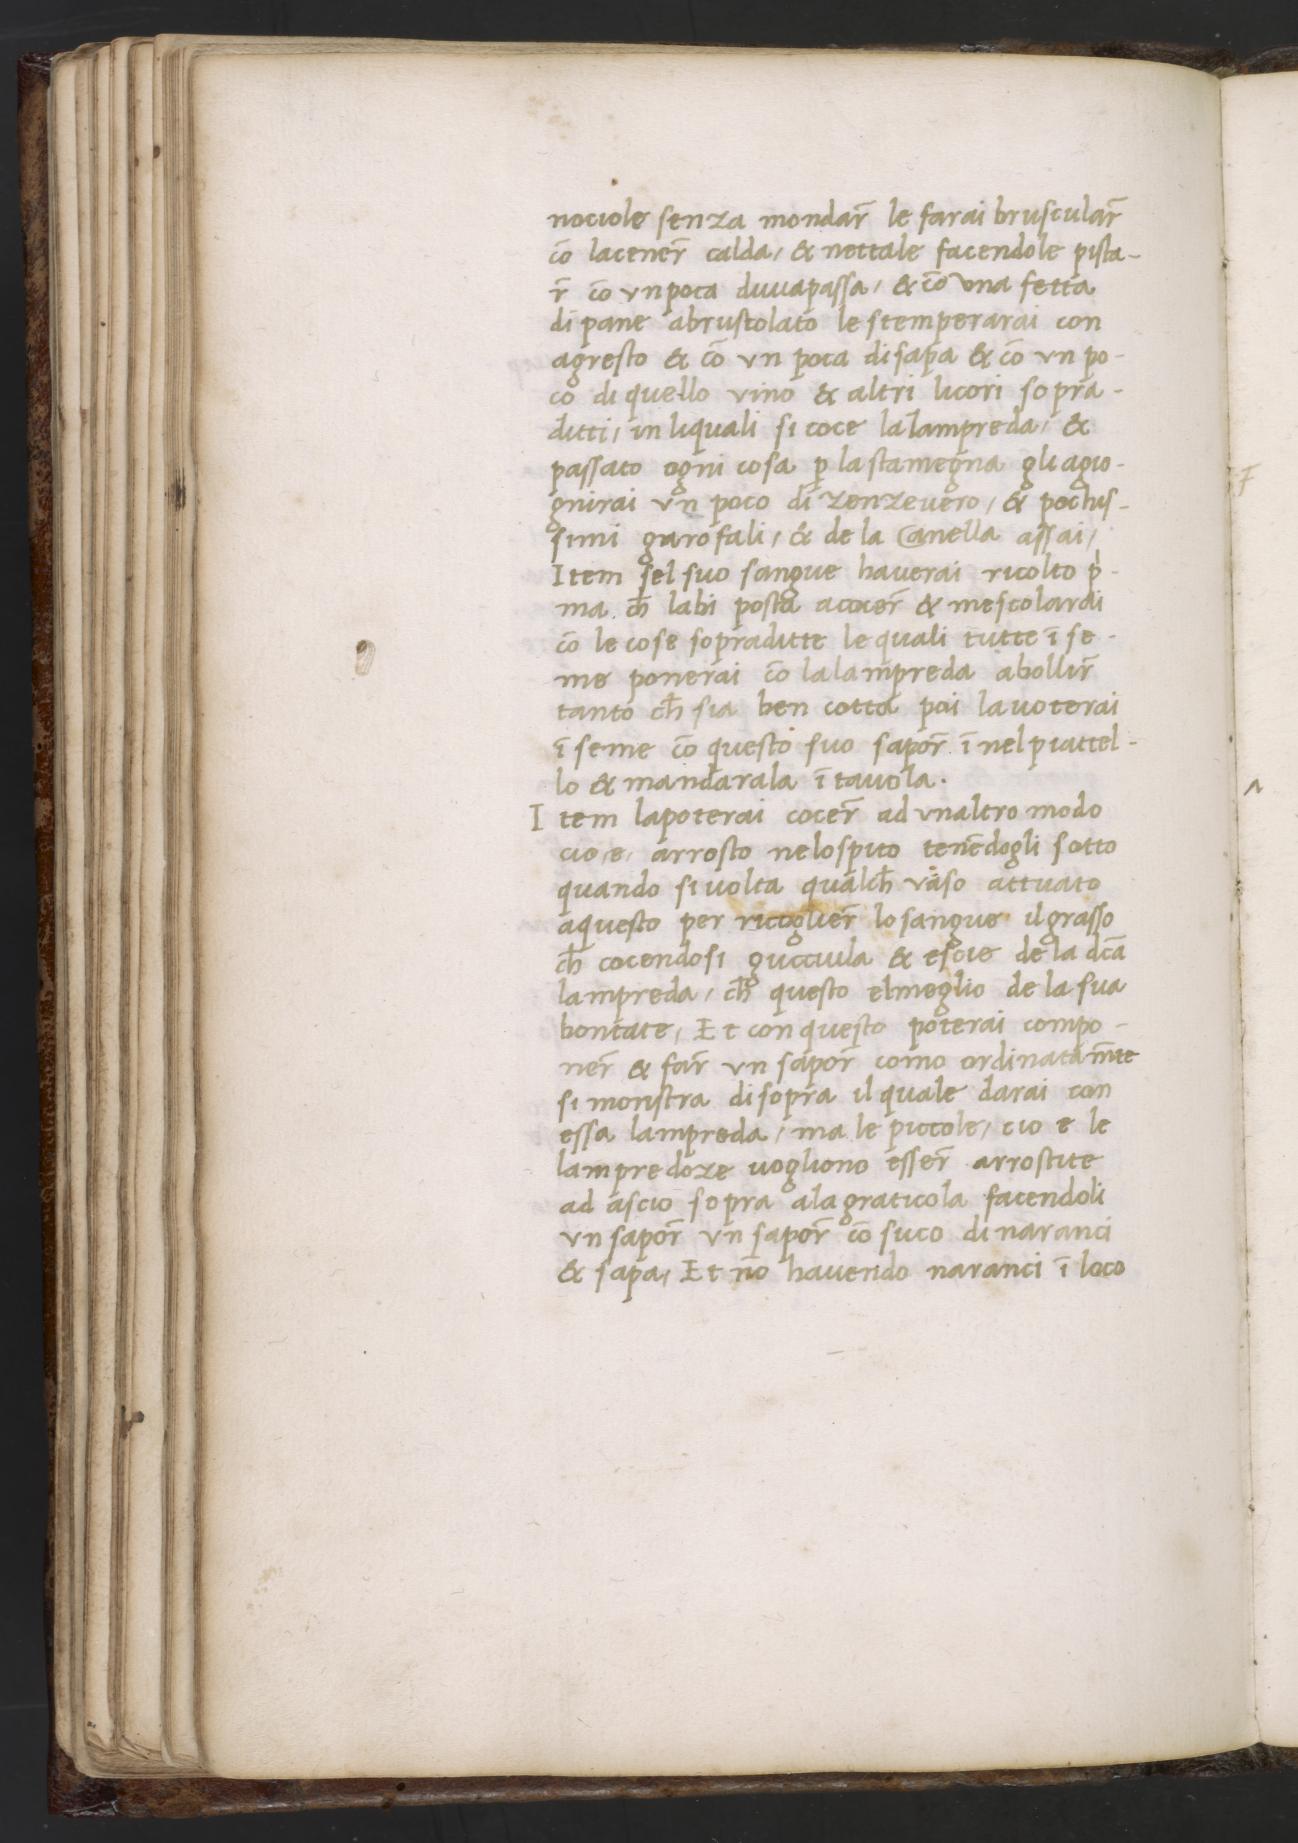 nociole senza mondar̄ le farai bruscular̄
cō la cener̄ calda, & nettale facendole pista-
r̄ cō vn poca duuapassa, & cō una fetta
di pane abrustolato le stemperarai con
agresto & cō vn poca di sapa & cō vn po-
co di quello vino & altri licori sopra-
ditti, in liquali si coce la lampreda, &
passato ogni cosa p̱ la stamegna gli agio-
gnirai vn poco di zenzevero, & pochis-
simi garofali, & de la Canella assai,
Item sel suo sangue haverai ricolto p̍-
ma ch̄ labi posta acocer̄ & mescolarai
cō le cose sopraditte le quali tutte ī se-
me ponerai cō la lampreda abollir̄
tanto ch̄ sia ben cotta poi la voterai
ī seme cō questo suo sapor̄ ī nel piattel-
lo & mandarala ī tavola.
I tem la poterai cocer̄ ad vnaltro modo
cio, e, arrosto nelo spito tenēdogli sotto
quando si volta qualch̄ vaso attuato
aquesto per ricoglier̄ lo sangue il grasso
ch̄ cocendosi gucciula & escie de la dc̄a
lampreda, ch̄ questo el meglio de la sua
bontate, Et con questo poterai compo-
ner̄ & far̄ vn sapor̄ como ordinatam̄te
si monstra di sopra il quale darai con
essa lampreda, ma le piccole, cio e le
lampredoze uogliono esser̄ arrostite
ad ascio sopra ala graticola facendoli
vn sapor̄ vn sapor̄ cō suco di naranci
& sapa, Et nō havendo naranci ī loco